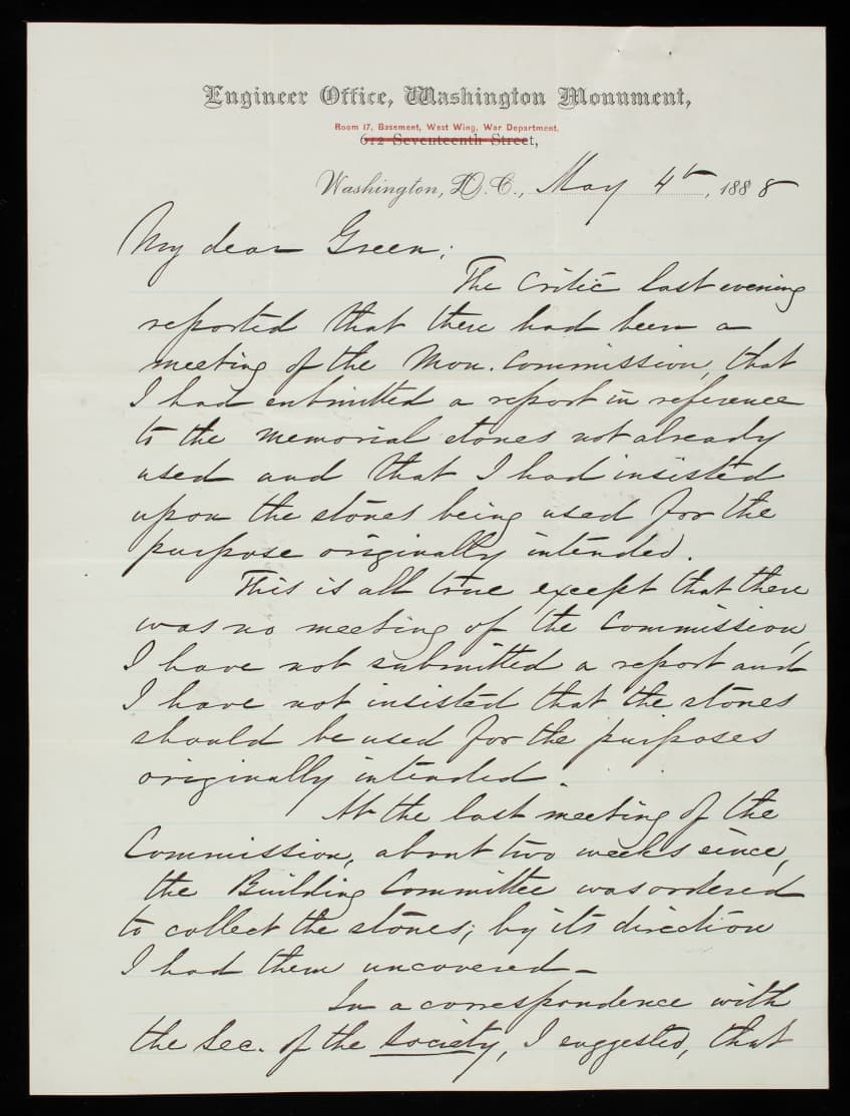 Engineer Office, Washington Monument,
Room 17, Basement, West Wing, War Department.
612 Seventeenth Street,
Washington, D.C., May 4th, 1888
My dear Green;
The Critic last evening
reported that there had been a
meeting of the Mon. Commission, that
I had submitted a report in reference
to the memorial stones not already
used and that I had insisted
upon the stones being used for the
purpose originally intended.
This is all true except that there
was no meeting of the Commission,
I have not submitted a report and
I have not insisted that the stones
should be used for the purposes
originally intended.
At the last meeting of the
Commission, about two weeks since,
the Building Committee was ordered
to collect the stones; by its direction
I had them uncovered –
In a correspondence with
the Sec. of the Society, I suggested, that